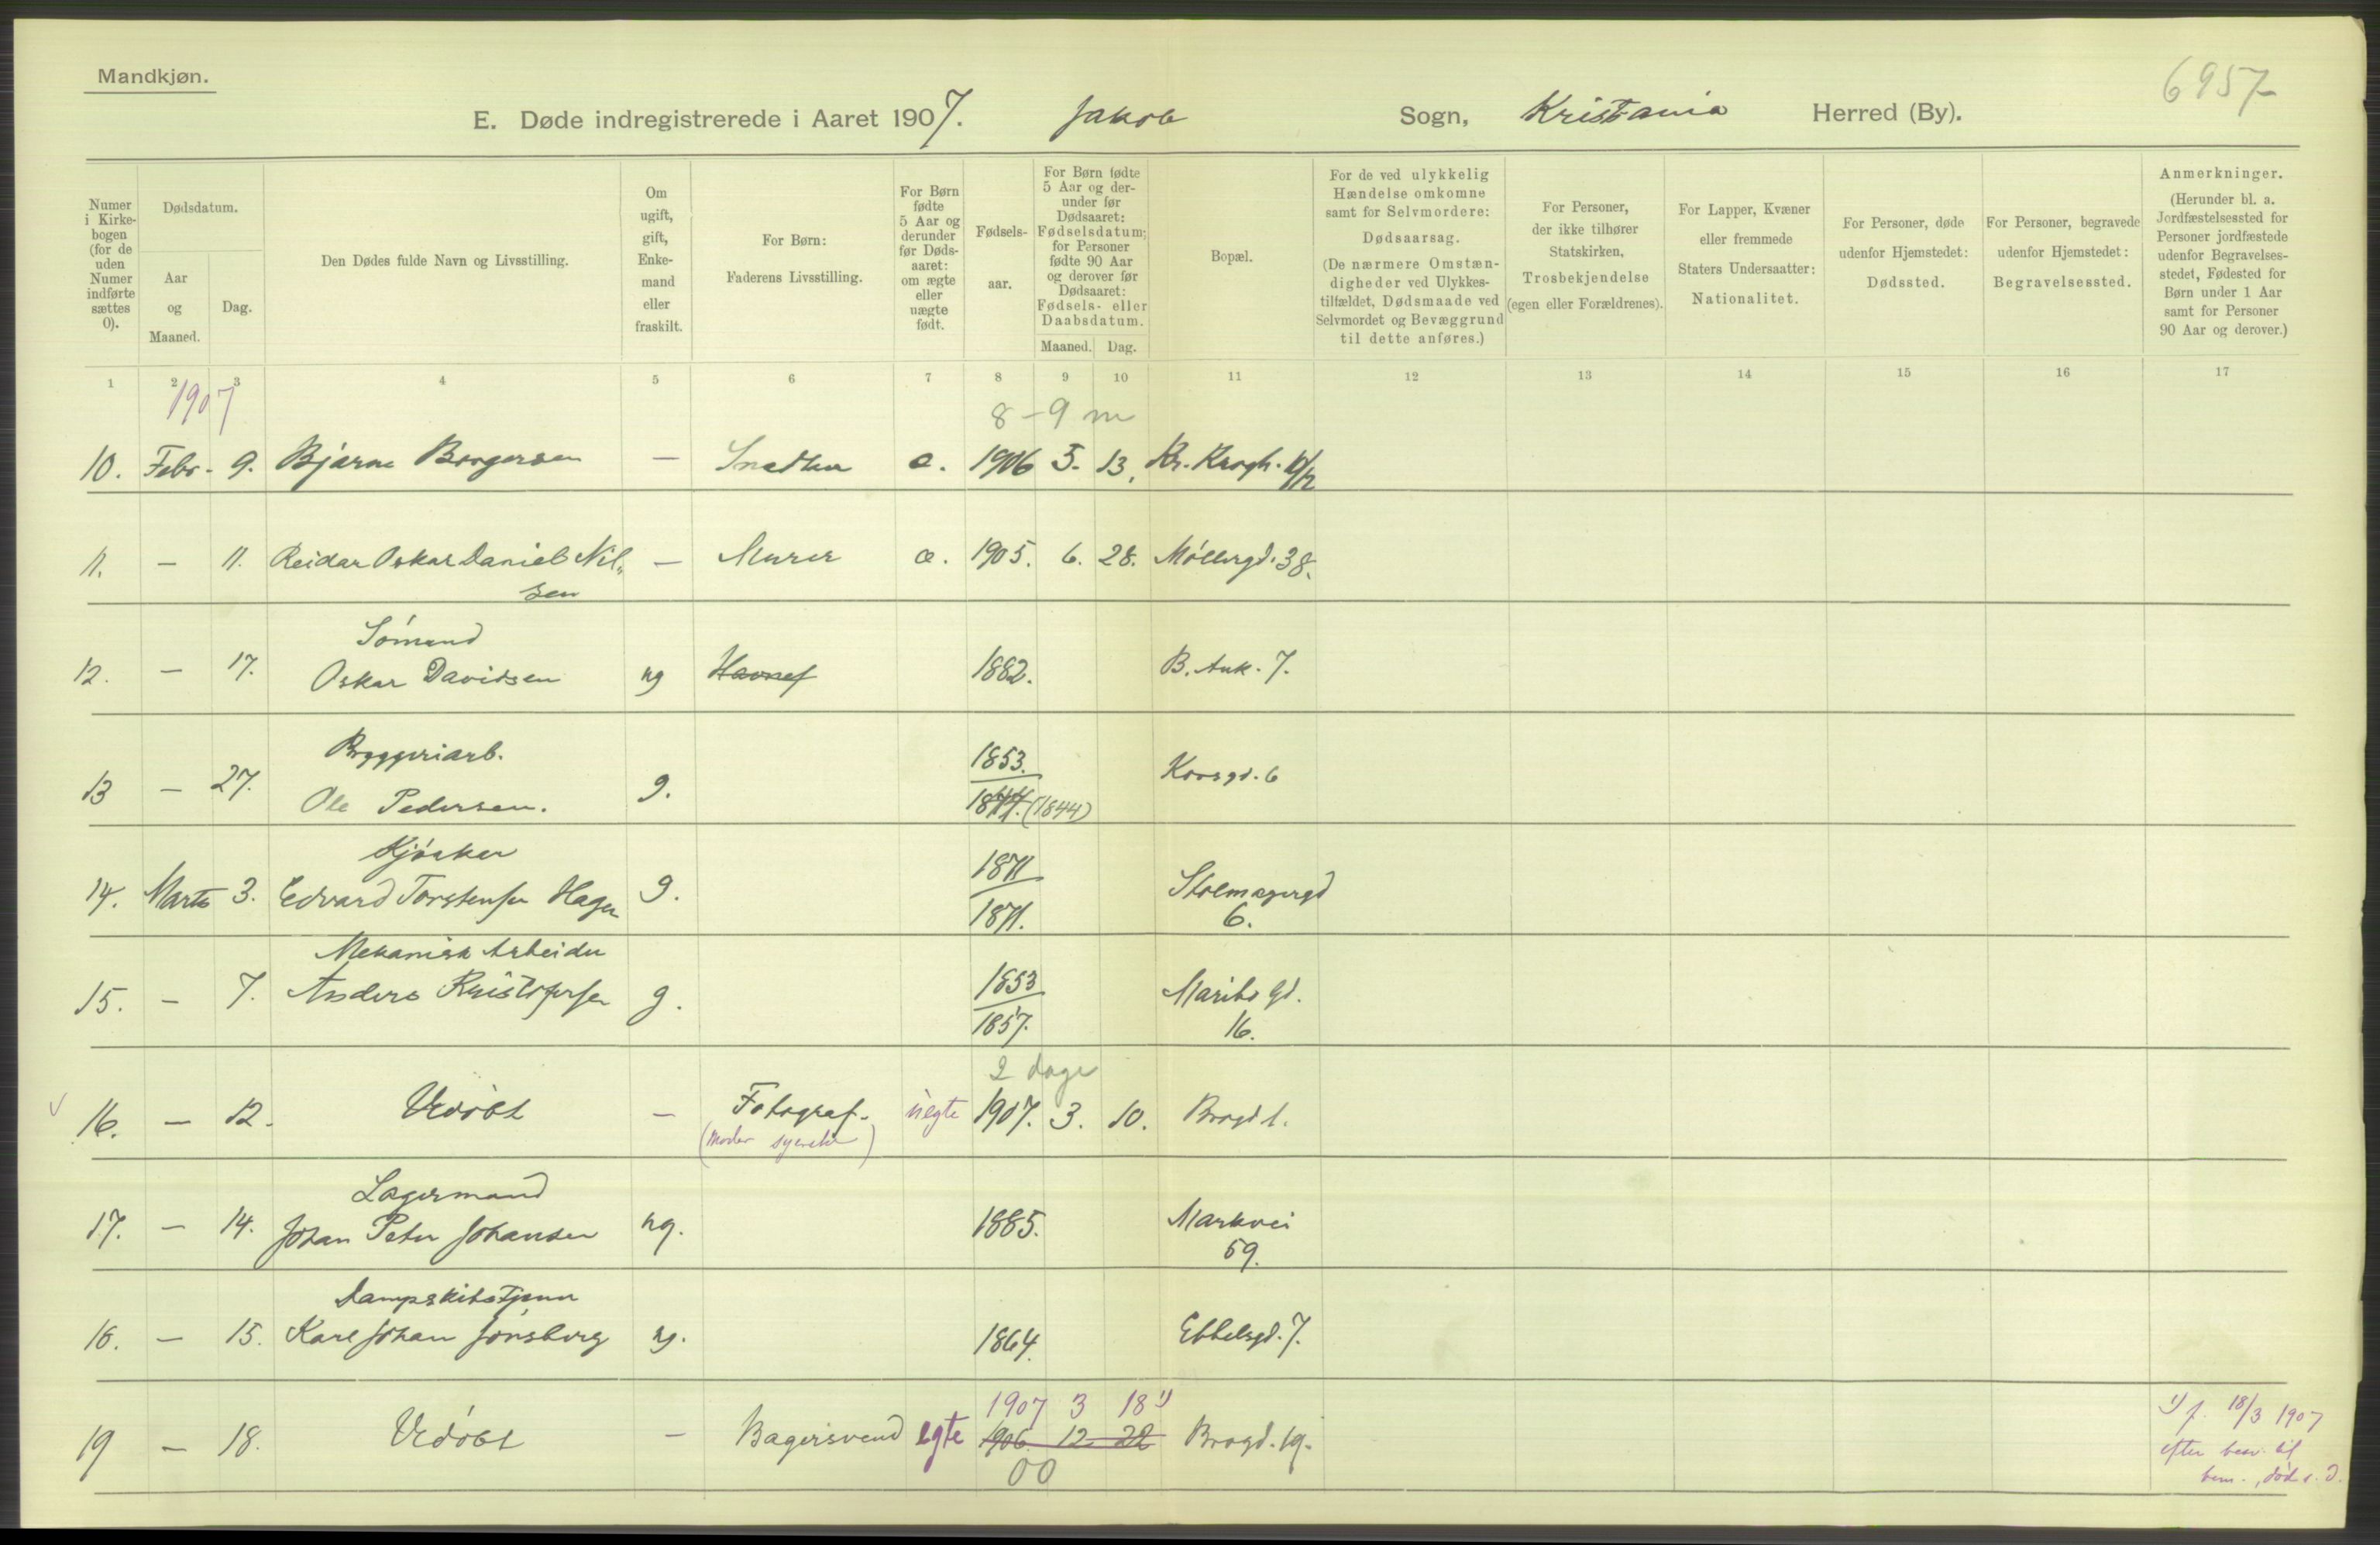 Mandkjøn.
6957
E. Døde indregistrerede i Aaret 1907. Jakob Sogn, Kristania Herred (By).
Numer i Kirkebogen (for de uden Numer indførte sættes 0).
Dødsdatum.
Aar og Maaned.
Dag.
Den Dødes fulde Navn og Livsstilling.
Om ugift, gift, Enkemand eller fraskilt.
For Børn: Faderens Livsstilling.
For Børn fødte 5 Aar og derunder før Dødsaaret: om ægte eller uægte født.
Fødselsaar.
For Børn fødte 5 Aar og derunder før Dødsaaret: Fødselsdatum; for Personer fødte 90 Aar og derover før Dødsaaret: Fødsels- eller Daabsdatum.
Maaned. Dag.
Bopæl.
For de ved ulykkelig Hændelse omkomne samt for Selvmordere: Dødsaarsag. (De nærmere Omstændigheder ved Ulykkestilfældet, Dødsmaade ved Selvmordet og Bevæggrund til dette anføres.)
For Personer, der ikke tilhører Statskirken, Trosbekjendelse (egen eller Forældrenes).
For Lapper, Kvæner eller fremmede Staters Undersaatter: Nationalitet.
For Personer, døde udenfor Hjemstedet: Dødssted.
For Personer, begravede udenfor Hjemstedet: Begravelsessted.
Anmerkninger. (Herunder bl. a. Jordfæstelsessted for Personer jordfæstede udenfor Begravelsesstedet, Fødested for Børn under 1 Aar samt for Personer 90 Aar og derover.)
1 2 3 4 5 6 7 8 9 10 11 12 13 14 15 16 17
1907
8-9 m
10. Febr. 9. Bjarne Borgersen — Snedker e. 1906 5. 13. Kr. Krogh.
11. — 11. Reidar Oskar Daniel Nil„ — Murer e. 1905. 6. 28. Møllergd. 38.
sen
Sømand
12. — 17. Oskar Davidsen ug 1882. B. Ank. 7.
Bryggeriarb. 1853.
13 — 27. Ole Pedersen. g. (1844) Korsgd. 6
Kjøsker 1871
14. Marts 3. Edvard Torstensen Hagen g. 1871. Stolmagergd
6.
Mekanisk Arbeider
15. — 7. Anders Kristofersen g. 1853 Maribogd.
1857. 16.
2 dage
16. — 12. Udøbt — Fotograf. uegte 1907. 3. 10. Brogd 1.
(Moder syerske)
Lagermand
17. — 14. Johan Peter Johansen ug. 1885. Markvei
59.
Dampskibstjener
18. — 15. Karl Johan Jonsborg ug. 1864. Ebbelsgd. 7.
1907 3 18 1)
19 — 18. Udøbt — Bagersvend egte 1906. 12. 22 Brogd. 19.
00
1) f. 18/3 1907
efter
død s. D.